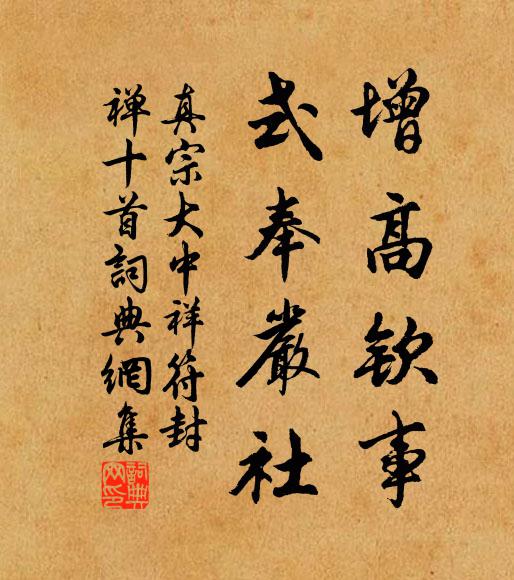 增高欽事
式奉嚴社
真宗大中祥符封
禅十首詞典網集
詞典网印